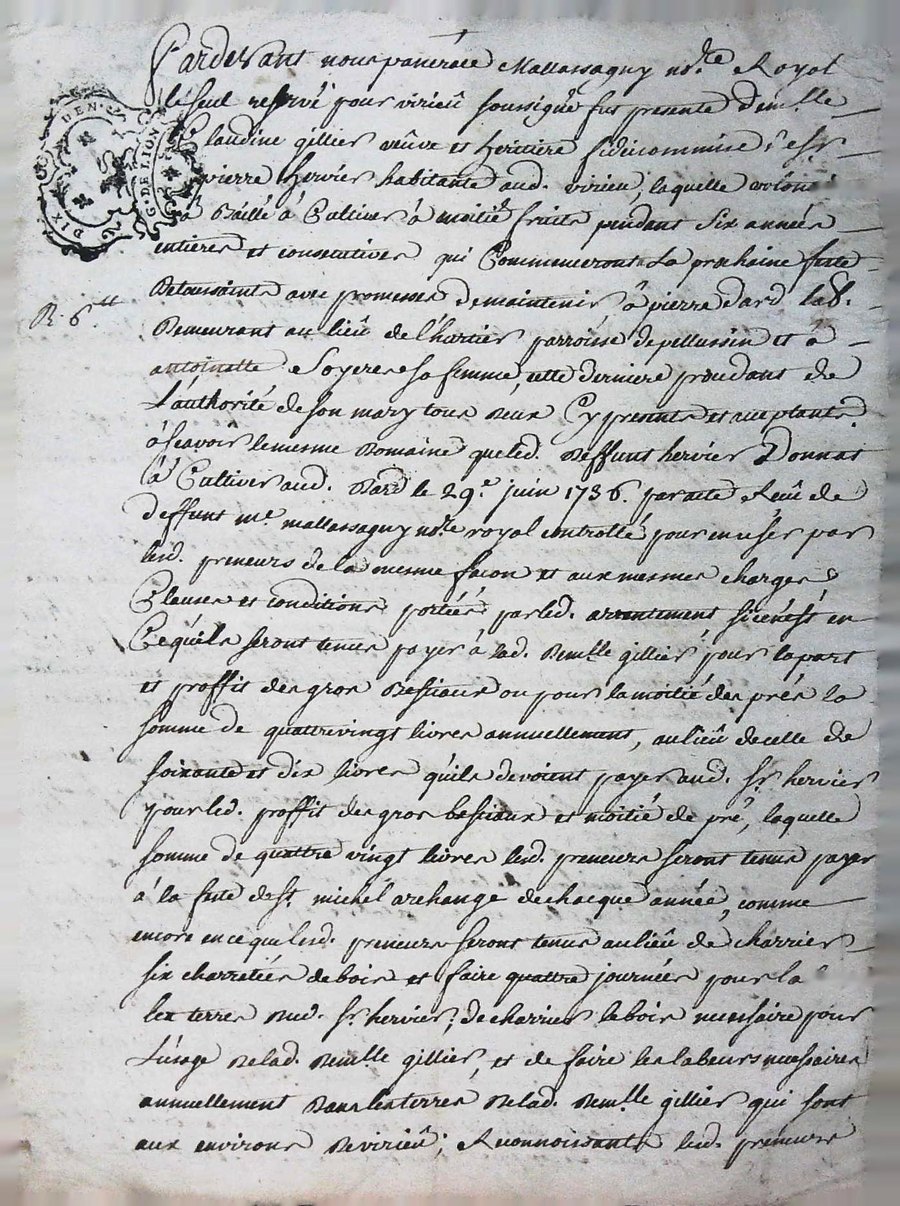 Pardevant nous Mallassagny no.re Royal
le seul reservé pour virieu soussigné fut presente demelle
Claudine gillier veuve et heritiere fideicommise du sr
pierre hervier habitante aud. virieu, laquelle
a baillé à Cultiver à moitié fruits pendant six années
entieres et consecutives qui Commenceront La prochaine feste
De toussaints avec promesses de maintenir, à pierre dard lab.
Demeurant au lieu de parroisse de pellussin et à
antoinette Soyere sa femme, cette derniere procedant de
L'authorité de son mary tous deux Cy presents et acceptants
à scavoir le mesme Domaine que led. deffunt hervier Donnat
à Cultiver aud. Dard le 29.e juin 1736. par acte Receu de
deffunt me. mallassagny no.re royal controllé pour en user par
lesd. preneurs de la mesme façon et aux mesmes charges
Clauses et conditions portées par led. arrentement si ce n'est en
Ce qu'ils seront tenus payer à lad. Demelle gillier pour la part
et proffit des gros Bestiaux ou pour la moitié des prés la
somme de quattrevingt livres annuellement, au lieu de celle de
soixante et dix livres qu'ils devoient payer aud. sr. hervier
pour led. proffit des gros bestiaux et moitié de pré, laquelle
somme de quattre vingt livres lesd. preneurs seront tenus payer
à la feste de st. michel archange de chacque année, comme
encore en ce que lesd. preneurs seront tenus au lieu de charrier
six charretées de bois et faire quattre journées pour la
les terres dud. sr. hervier, de charrier le bois necessaire pour
L'usage de lad. Demelle gillier, et de faire les labeurs necessaires
annuellement Dans les terres de lad. Demelle gillier qui sont
aux environs de virieu; Reconnoissants lesd. preneurs
R. 6.tt
DIX DEN.
G. DE LION